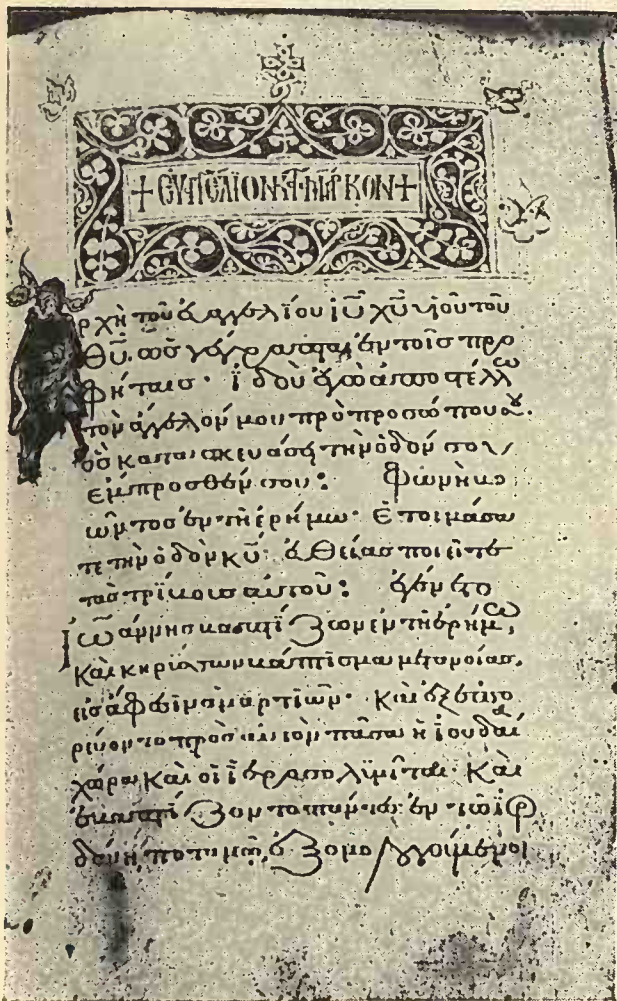 + ΕΥΑΓΓΕΛΙΟΝ ΚΑΤ ΜΑΡΚΟΝ +
ρχὴ τοῦ εὐαγγελίου ἰῡ χῡ υἱοῦ τοῦ
θῡ. ὡς γέγραπται ἐν τοῖς προ
φήταις· ἰδοὺ ἐγὼ ἀποστέλλω
τὸν ἄγγελόν μου πρὸ προσώπου σου.
ὃς κατασκευάσει τὴν ὁδόν σου
ἔμπροσθέν σου: Φωνὴ βο
ῶντος ἐν τῇ ἐρήμω· Ἑτοιμάσα
τε τὴν ὁδὸν κῡ· εὐθείας ποιεῖτε
τὰς τρίβους αὐτοῦ: ἐγένετο
Ἰωάννης βαπτίζων ἐν τῇ ἐρήμω,
καὶ κηρύσσων βάπτισμα μετανοίας,
εἰς ἄφεσιν ἁμαρτιῶν· Καὶ ἐξεπο
ρεύοντο πρὸς αὐτὸν πᾶσα ἡ ἰουδαία
χώρα καὶ οἱ ἱεροσολυμῖται· Καὶ
ἐβαπτίζοντο πάντες ἐν τῶ ἰορ
δάνη ποταμῶ, ἐξομολογούμενοι